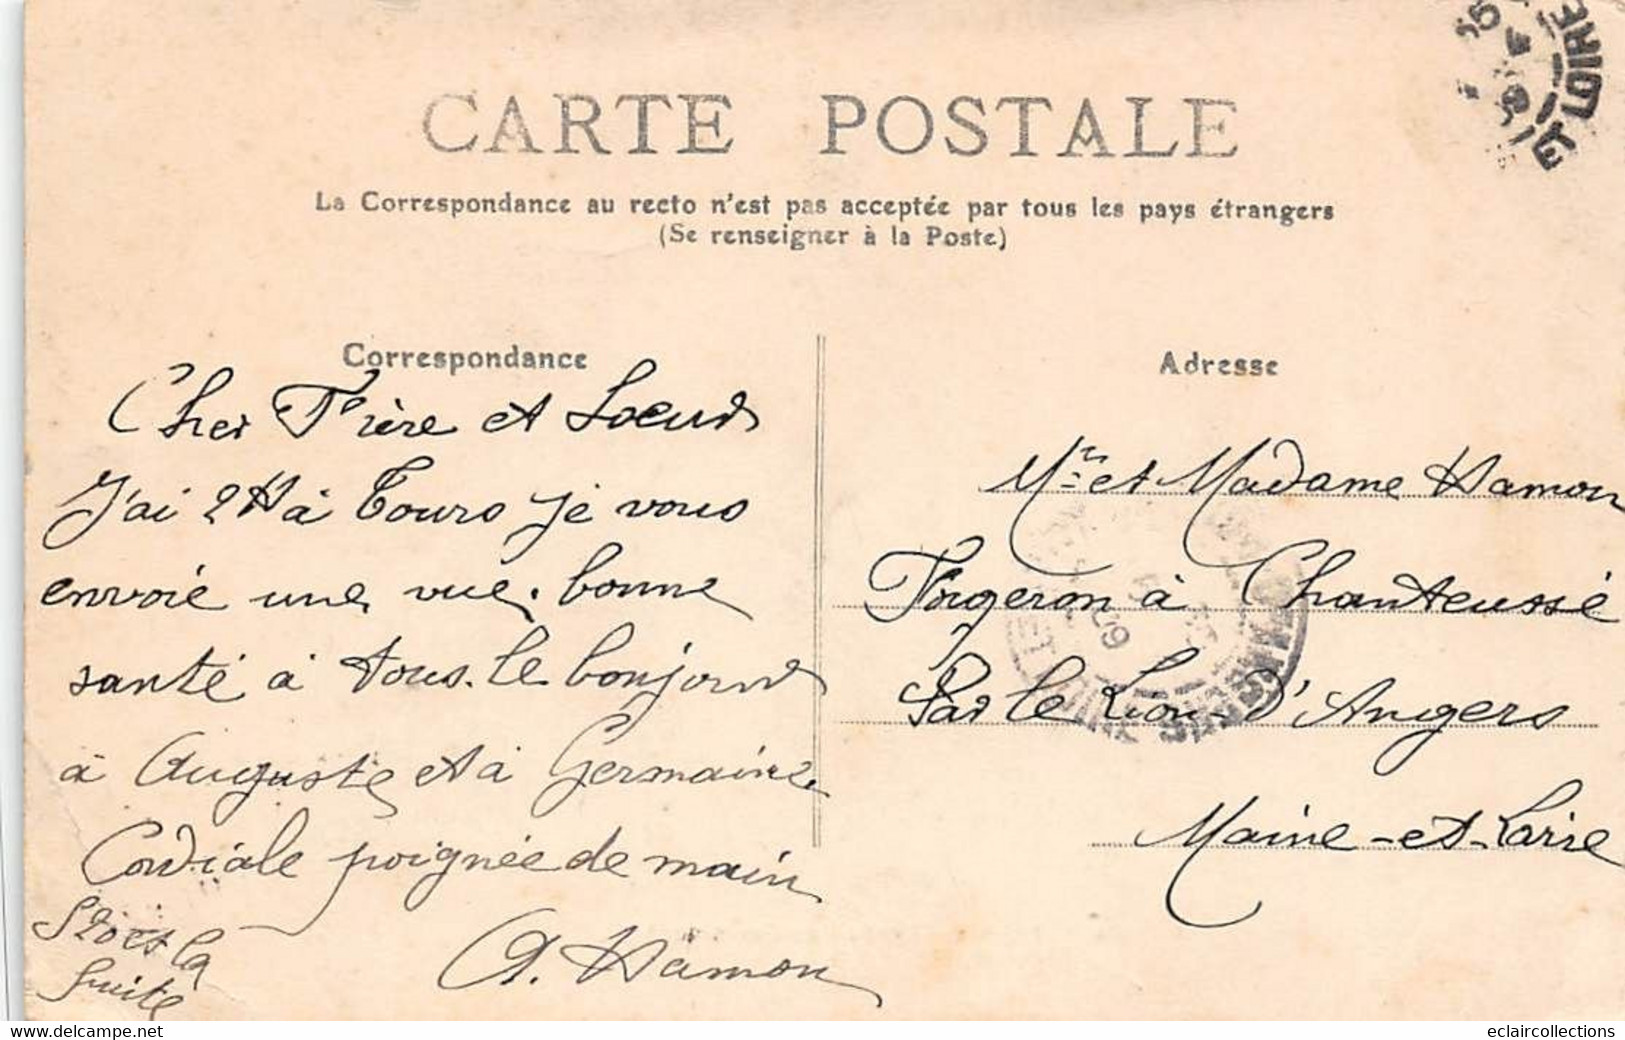 CARTE POSTALE
La Correspondance au recto n'est pas acceptée par tous les pays étrangers
(Se renseigner à la Poste)
Correspondance
Cher Frère et Soeur
J'ai 2 H à Tours je vous
envoie une vue. bonne
santé à tous. le bonjour
à Auguste et à Germaine
Cordiale poignée de main
A. Hamon
la
suite
Adresse
Mr et Madame Hamon
Forgeron à Chanteussé
Par le Lion-d'Angers
Maine-et-Loire
ET LOIRE
09
www.delcampe.net
eclaircollections